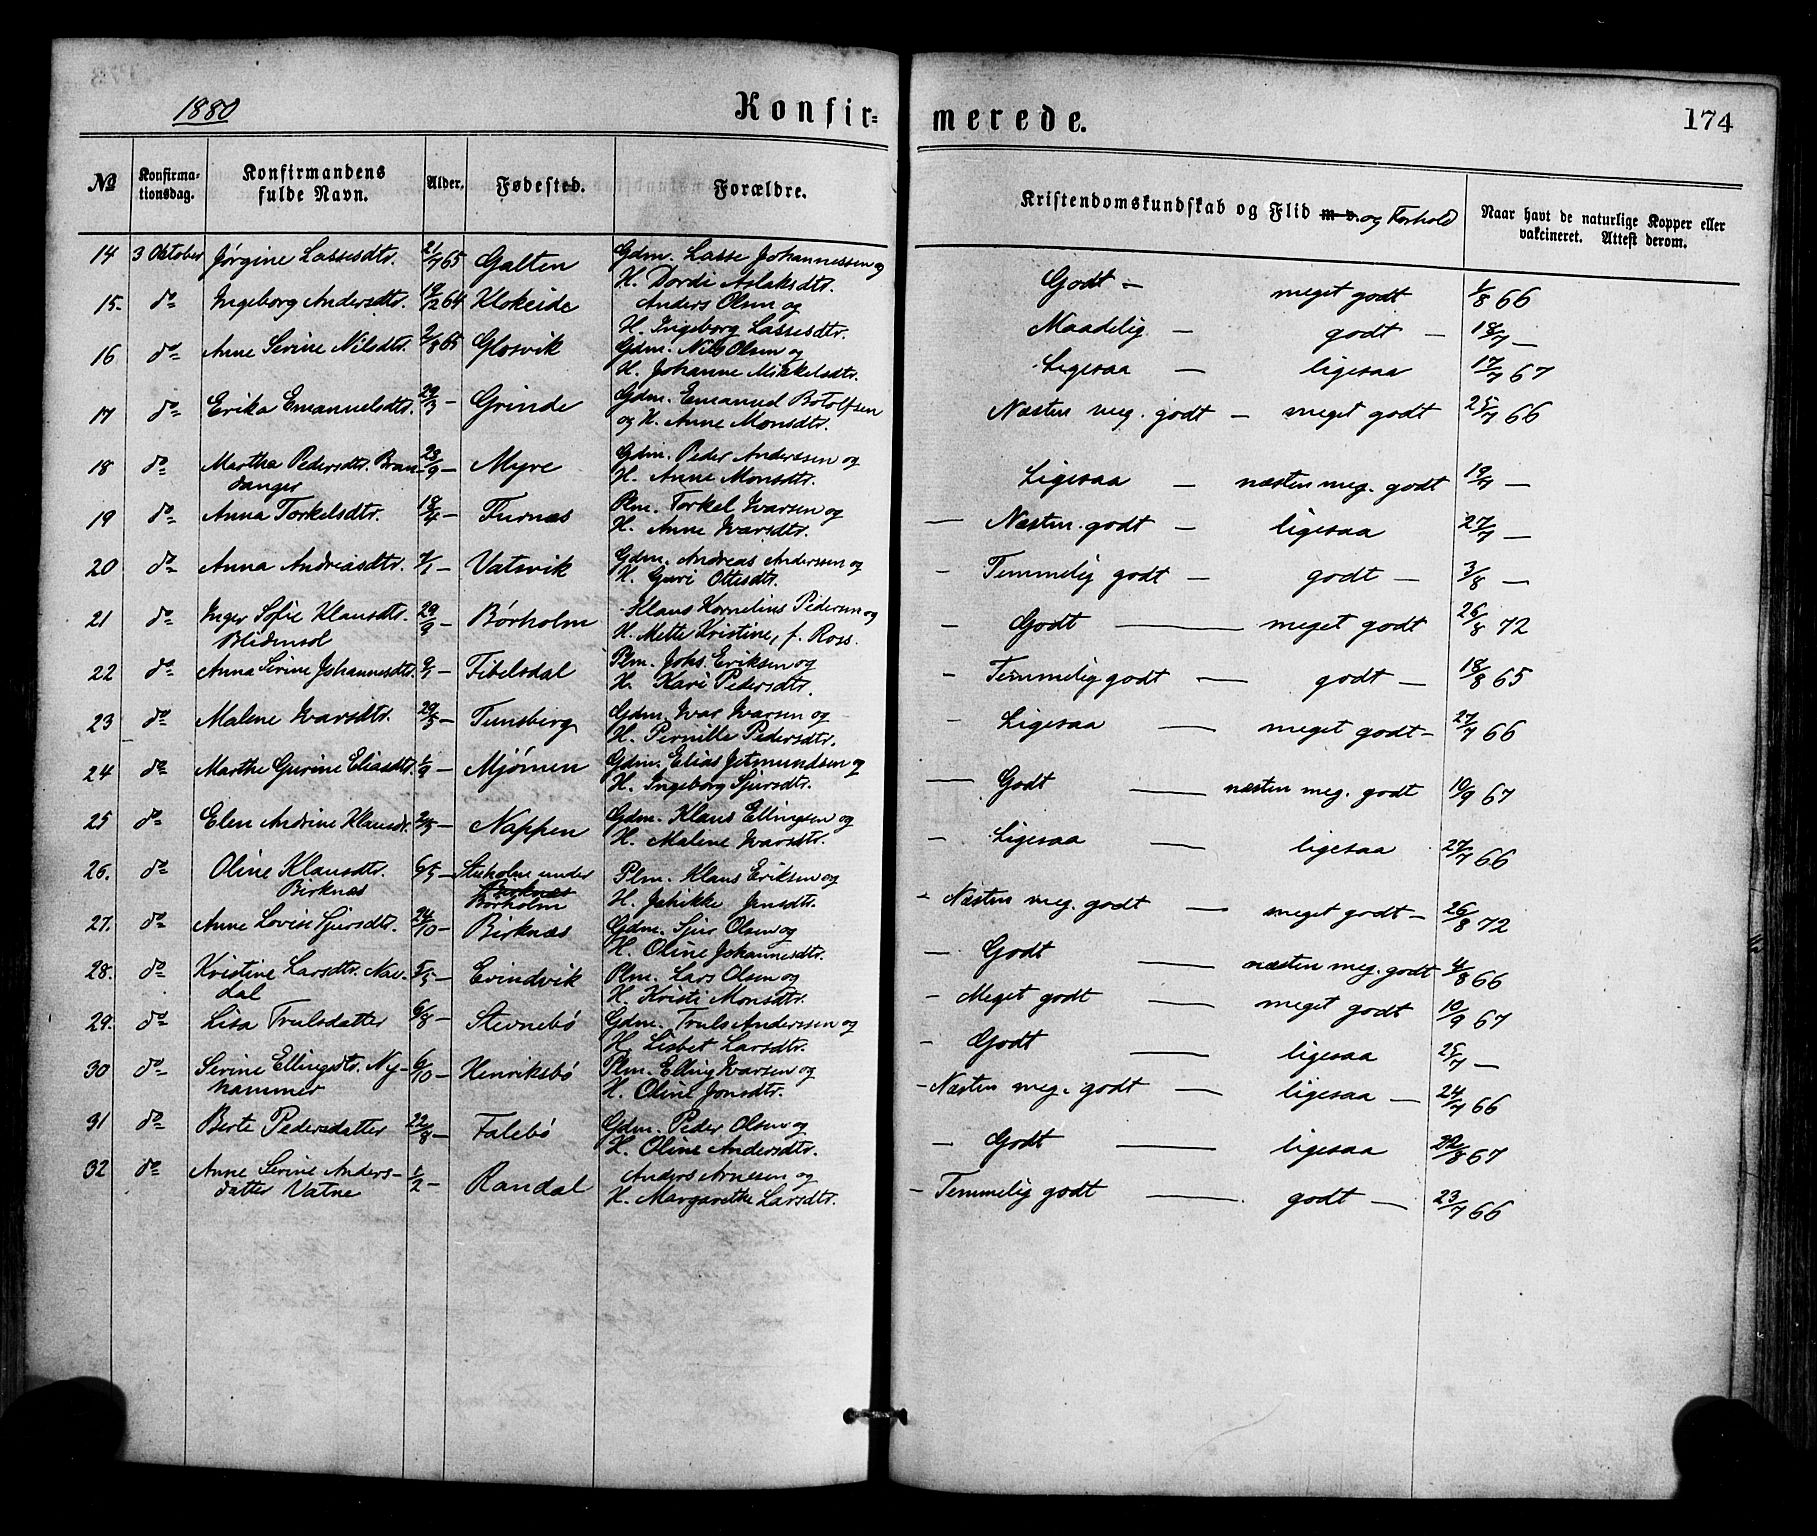 1880 Konfir= merede. 174
No Konfirma-tionsdag. Konfirmandens fulde Navn. Alder. Fødested. Forældre. Kristendomskundskab og Flid m. v. og Forhold Naar havt de naturlige Kopper eller vakcineret. Attest derom.
14 3 Oktober Jørgine Lassesdtr. 21/7 65 Galten Gdm. Lasse Johannessen og
H. Dordi Aslaksdtr. Godt - meget godt 1/8 66
15. do Ingeborg Andersdtr. 19/12 64 Klokeide Anders Olsen og
H. Ingeborg Lassesdtr. Maadelig - godt - 18/7 -
16 do Anne Serine Nilsdtr. 2/8 65 Glosvik Gdm. Nils Olsen og
H. Johanne Mikkelsdtr. Ligesaa - ligesaa 17/7 67
17 do Erika Emanuelsdtr. 29/3 - Grinde Gdm. Emanuel Botolfsen
og H. Anne Monsdtr. Næsten meg. godt - meget godt 25/7 66
18 do Martha Pedersdtr. Bran- 23/9 - Myre Gdm. Peder Anderssen og
danger H. Anne Monsdtr. Ligesaa - næsten meg. godt 19/7 -
19 do Anna Torkelsdtr. 18/4 - Furnæs Plm. Torkel Ivarsen og
H. Anne Ivarsdtr. - Næsten godt - ligesaa 27/7 -
20 do Anna Andreasdtr. 7/1 - Vatsvik Gdm. Andreas Anderssen og
H. Guri Ottesdtr. - Temmelig godt - godt - 3/8 -
21 do Inger Sofie Klausdtr. 29/9 - Børholm Klaus Kornelius Pedersen og
Blidensol H. Mette Kristine, f. Ross. - Godt - meget godt 26/8 72
22 do Anna Serine Johannesdtr. 9/1 - Fibelsdal Plm. Johs. Eriksen og
H. Kari Pedersdtr. - Temmelig godt - godt - 18/8 65
23 do Malene Ivarsdtr. 29/3 - Tunsberg Gdm. Ivar Ivarsen og
H. Pernille Pedersdtr. - Ligesaa - meget godt - 27/7 66
24 do Marthe Gurine Eliasdtr. 1/9 - Mjømen Gdm. Elias Jetmundsen og
H. Ingeborg Sjursdtr. - Godt - næsten meg. godt 10/9 67
25 do Elen Andrine Klausdr. 2/5 - Nappen Gdm. Klaus Ellingsen og
H. Malene Ivarsdtr. - Ligesaa - ligesaa 27/7 66
26. do Oline Klausdtr. 6/5 - under Plm. Klaus Eriksen og
Birknæs Birknæs Børholm H. Jensdtr. - Næsten meg. godt - meget godt - 26/8 72
27. do Anne Lovise Sjursdtr. 24/10 - Birknæs Gdm. Sjur Olsen og
H. Oline Johannesdtr. - Godt - næsten meg. godt 4/8 66
28. do Kristine Larsdtr. Nae- 5/5 - Evindvik Plm. Lars Olsen og
dal H. Kristi Monsdtr. - Meget godt - meget godt 10/9 67
29. do Lisa Trulsdatter 6/8 - Stevnebø Gdm. Truls Anderssen og
H. Lisbet Larsdtr. - Godt - ligesaa 25/7 -
30 do Serine Ellingsdtr. Ny- 6/10 - Henriksbø Plm. Elling Ivarsen og
hammer H. Oline Jonsdtr. - Næsten meg. godt - ligesaa - 24/7 66
31 do Berte Pedersdatter 22/8 - Falebø Gdm. Peder Olsen og
H. Oline Andersdtr. - Godt - ligesaa 22/8 67
32 do Anne Serine Anders- 1/2 - Randal Anders Arnesen og
datter Vatne H. Margarethe Larsdtr. - Temmelig godt - godt - 23/7 66